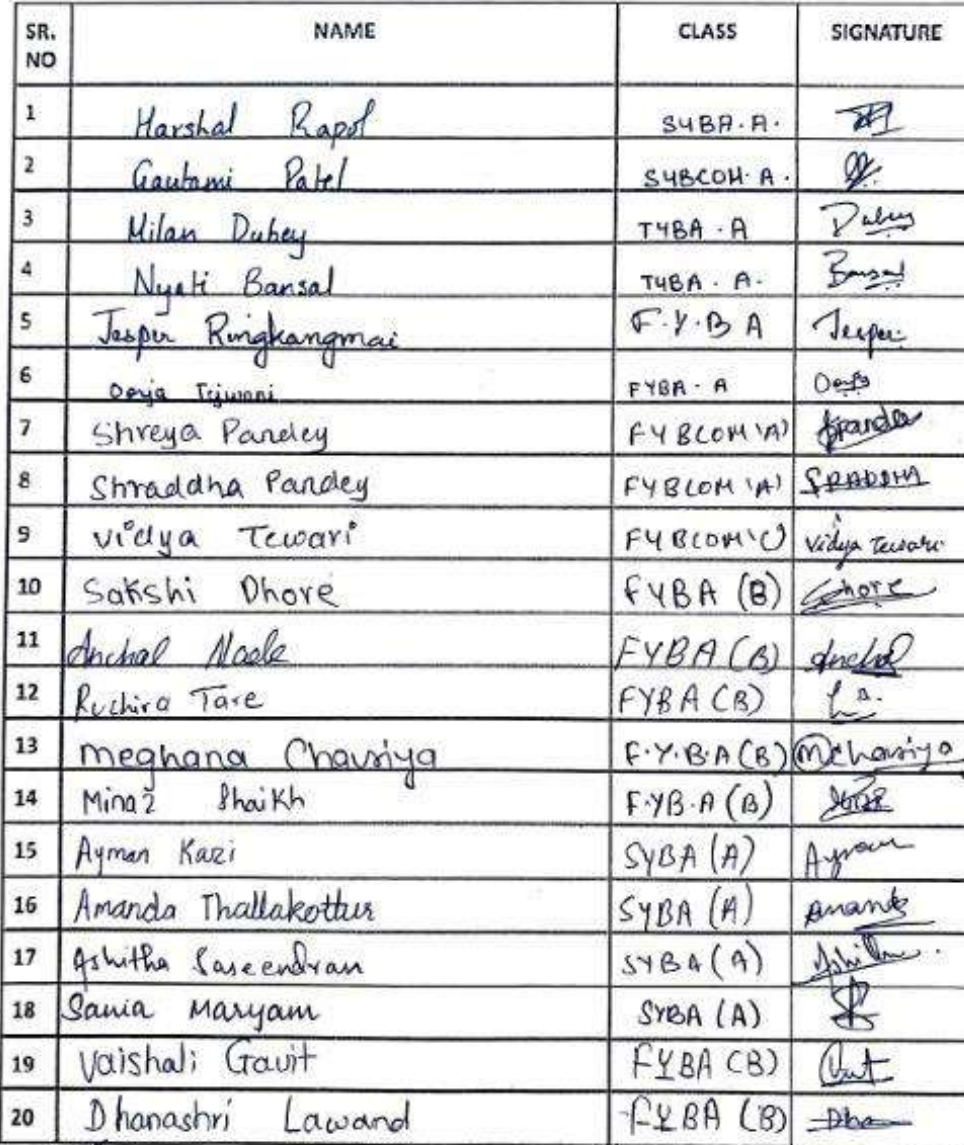 SR. NO NAME CLASS SIGNATURE
1 Harshal Rapol SYBA.A.
2 Gautami Patel SYBCOM.A.
3 Milan Dubey TYBA.A Dubey
4 Nyati Bansal TYBA.A. Bansal
5 Jesper Ringkangmai F.Y.B A Jesper
6 Tejwani FYBA-A
7 Shreya Pandey FYBCOM 'A'
8 Shraddha Pandey FYBCOM 'A'
9 Vidya Tewari FYBCOM 'C' Vidya Tewari
10 Sakshi Dhore FYBA (B) Dhore
11 Anchal FYBA (B) Anchal
12 Ruchira Tare FYBA (B)
13 Meghana Chavriya F.Y.B.A (B) MChavriya
14 Minaz Shaikh F.YB.A (B)
15 Ayman Kazi SYBA (A) Ayman
16 Amanda Thallakottur SYBA (A)
17 Ashitha Saseendran SYBA (A)
18 Sania Maryam SYBA (A)
19 Vaishali Gavit FYBA (B)
20 Dhanashri Lawand FYBA (B)